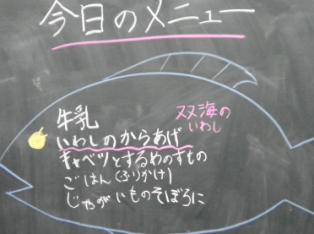 今日のメニュー
牛乳
双海の
いわし
いわしのからあげ
キャベツとするめのすもの
ごはん(ふりかけ)
じゃがいものそぼろに